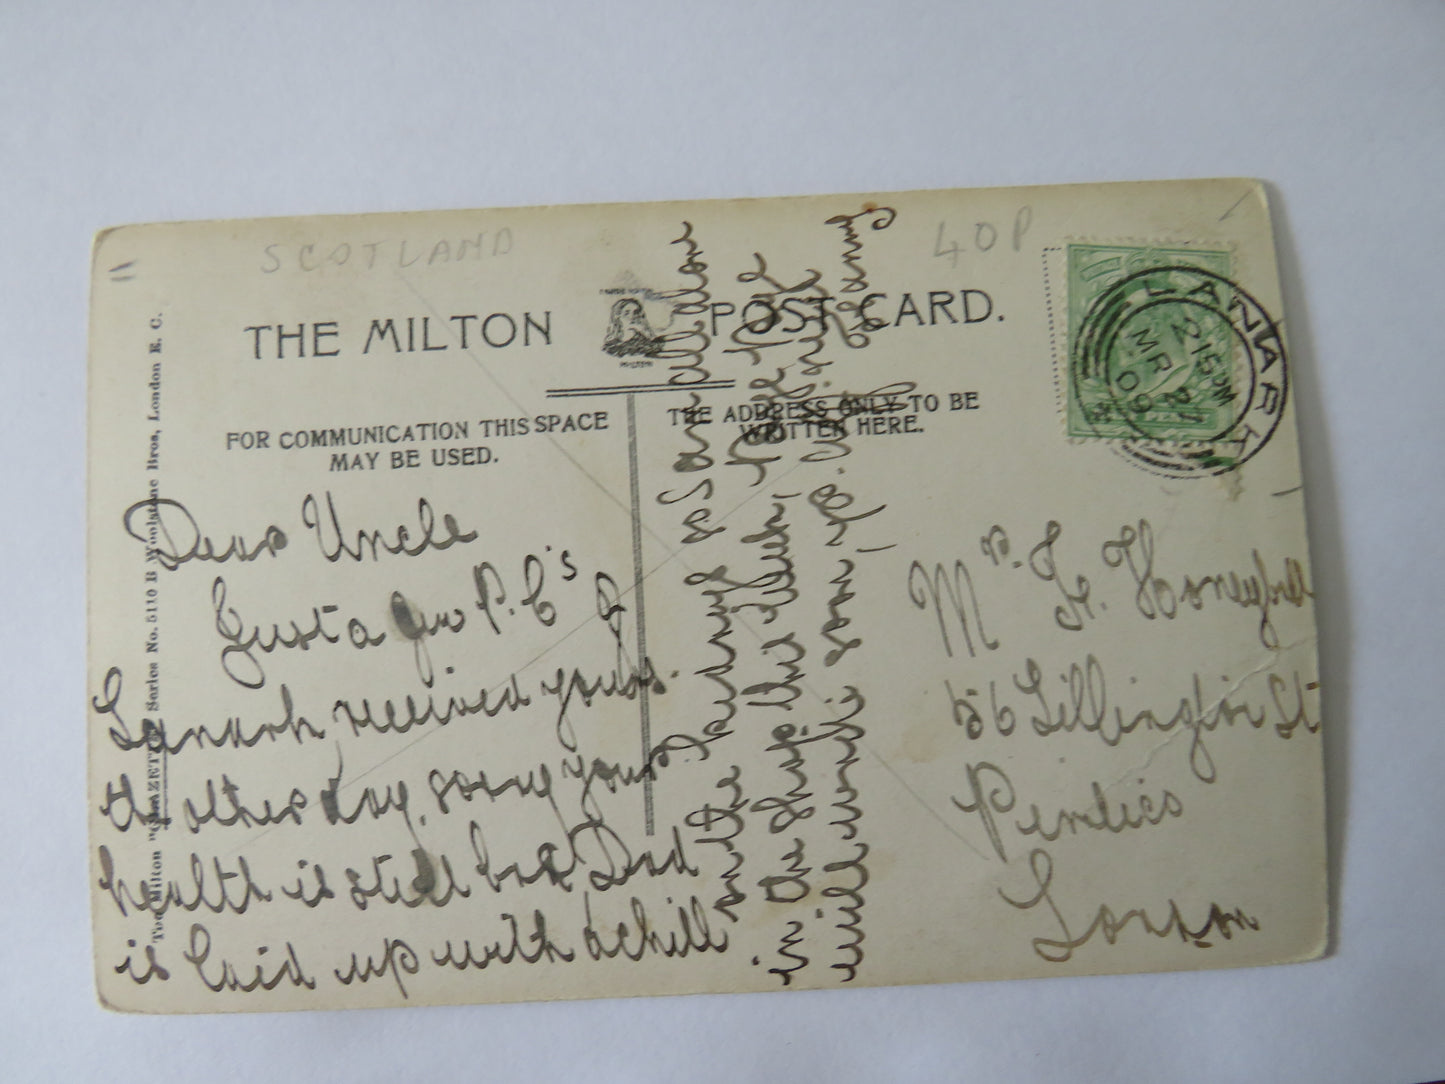 SCOTLAND
40P
THE MILTON POST CARD.
MILTON
FOR COMMUNICATION THIS SPACE
MAY BE USED.
THE ADDRESS ONLY TO BE
WRITTEN HERE.
LANARK
215 PM
MR 21
09
Dear Uncle
Just a few P.C's of
Lanark received yours
the other day, sorry your
health is still bad Dad
is laid up with a chill
on the kidneys so I am all alone
in the shop this week,
will write soon
Mr. F. Honeyball
56 Lillington St
Pimlico
London
The Milton "GLAZETTE" Series No. 5110 B Woolstone Bros, London E. C.